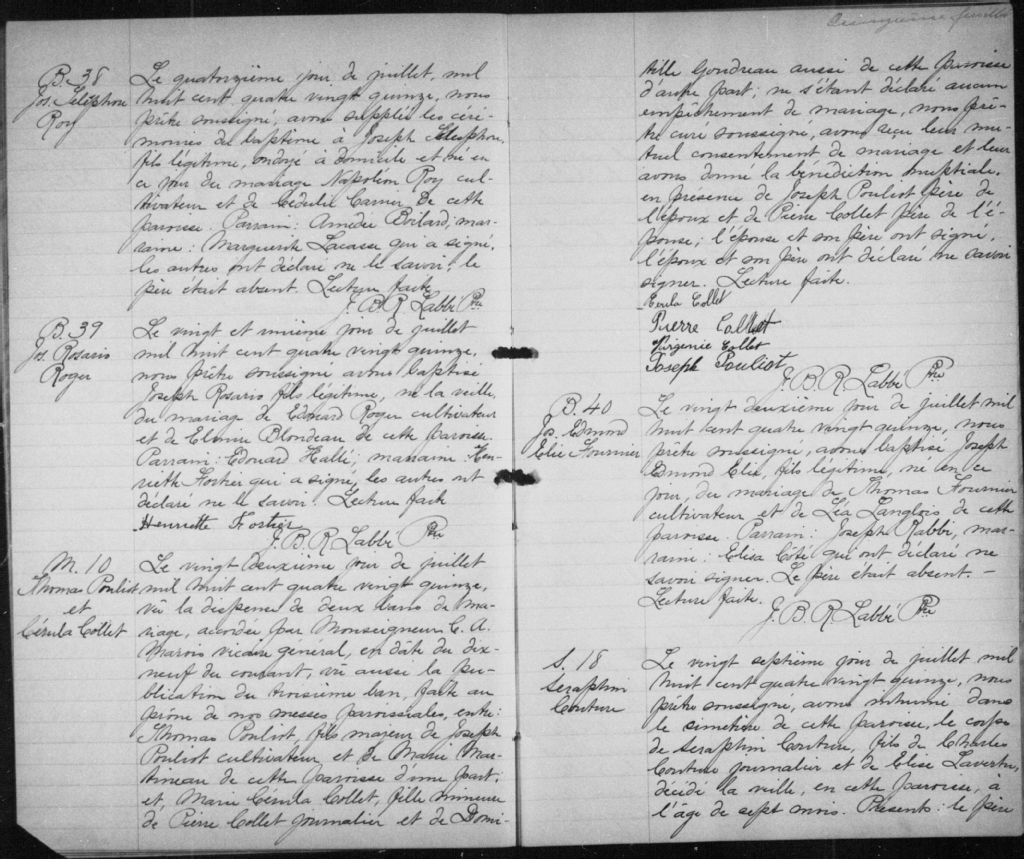 B. 38
Jos. Télesphore
Roy
Le quatorzième jour de juillet, mil
huit cent quatre vingt quinze, nous
prêtre soussigné, avons supplée les céré-
monies du baptême à Joseph Télesphore,
fils légitime, ondoyé à domicile et né en
ce jour du mariage Napoléon Roy cul-
tivateur et de Cédulie Carrier de cette
paroisse. Parrain: Amédée Boilard; mar-
raine: Marguerite Lacasse qui a signé,
les autres ont déclaré ne le savoir; le
père était absent. Lecture faite
J. B. R. Labbé Ptre
B. 39
Jos. Rosario
Roger
Le vingt et unième jour de juillet
mil huit cent quatre vingt quinze,
nous prêtre soussigné avons baptisé
Joseph Rosario fils légitime, né la veille
du mariage de Edouard Roger cultivateur
et de Elmire Blondeau de cette paroisse.
Parrain: Edouard Hallé; marraine: Hen-
riette Fortier qui a signé, les autres ont
déclaré ne le savoir. Lecture faite
Henriette Fortier
J. B. R. Labbé Ptre
M. 10
Thomas Pouliot
et
Cérula Collet
Le vingt deuxième jour de juillet
mil huit cent quatre vingt quinze,
vu la dispense de deux bans de ma-
riage, accordée par Monseigneur C. A.
Marois vicaire général, en date du dix-
neuf du courant, vu aussi la pu-
blication du troisième ban, faite au
prône de nos messes paroissiales, entre:
Thomas Pouliot, fils majeur de Joseph
Pouliot cultivateur et de Marie Mar-
tineau de cette paroisse d'une part;
et, Marie Cérula Collet, fille mineure
de Pierre Collet journalier et de Domi-
Cinquième feuillet
tille Gondreau aussi de cette paroisse
d'autre part; ne s'étant déclaré aucun
empêchement de mariage, nous prê-
tre curé soussigné, avons reçu leur mu-
tuel consentement de mariage et leur
avons donné la bénédiction nuptiale,
en présence de Joseph Pouliot père de
l'époux et de Pierre Collet père de l'é-
pouse; l'épouse et son père ont signé,
l'époux et son père ont déclaré ne savoir
signer. Lecture faite.
Cerula Collet
Pierre Collet
Virgenie Collet
Joseph Pouliot
J. B. R. Labbé Ptre
B. 40
Jos. Edmond
Elie Fournier
Le vingt deuxième jour de juillet mil
huit cent quatre vingt quinze, nous
prêtre soussigné, avons baptisé Joseph
Edmond Elie, fils légitime, né en ce
jour, du mariage de Thomas Fournier
cultivateur et de Léa Langlois de cette
paroisse. Parrain: Joseph Rabbi, mar-
raine: Elisa Côté qui ont déclaré ne
savoir signer. Le père était absent. -
Lecture faite.
J. B. R. Labbé Ptre
S. 18
Seraphin
Couture
Le vingt septième jour de juillet mil
huit cent quatre vingt quinze, nous
prêtre soussigné, avons inhumé dans
le cimetière de cette paroisse, le corps
de Seraphin Couture, fils de Charles
Couture journalier et de Elise Lavertu,
décédé la veille, en cette paroisse, à
l'âge de sept mois. Présents: le père